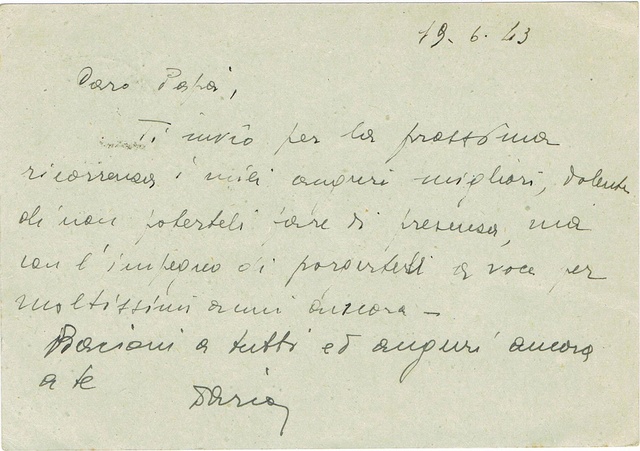 19.6.43
Caro Papà,
Ti invio per la prossima
ricorrenza i miei auguri migliori, dolente
di non poterteli fare di presenza, ma
con l'impegno di porgerteli a voce per
moltissimi anni ancora -
Bacioni a tutti ed auguri ancora
a te
Dario